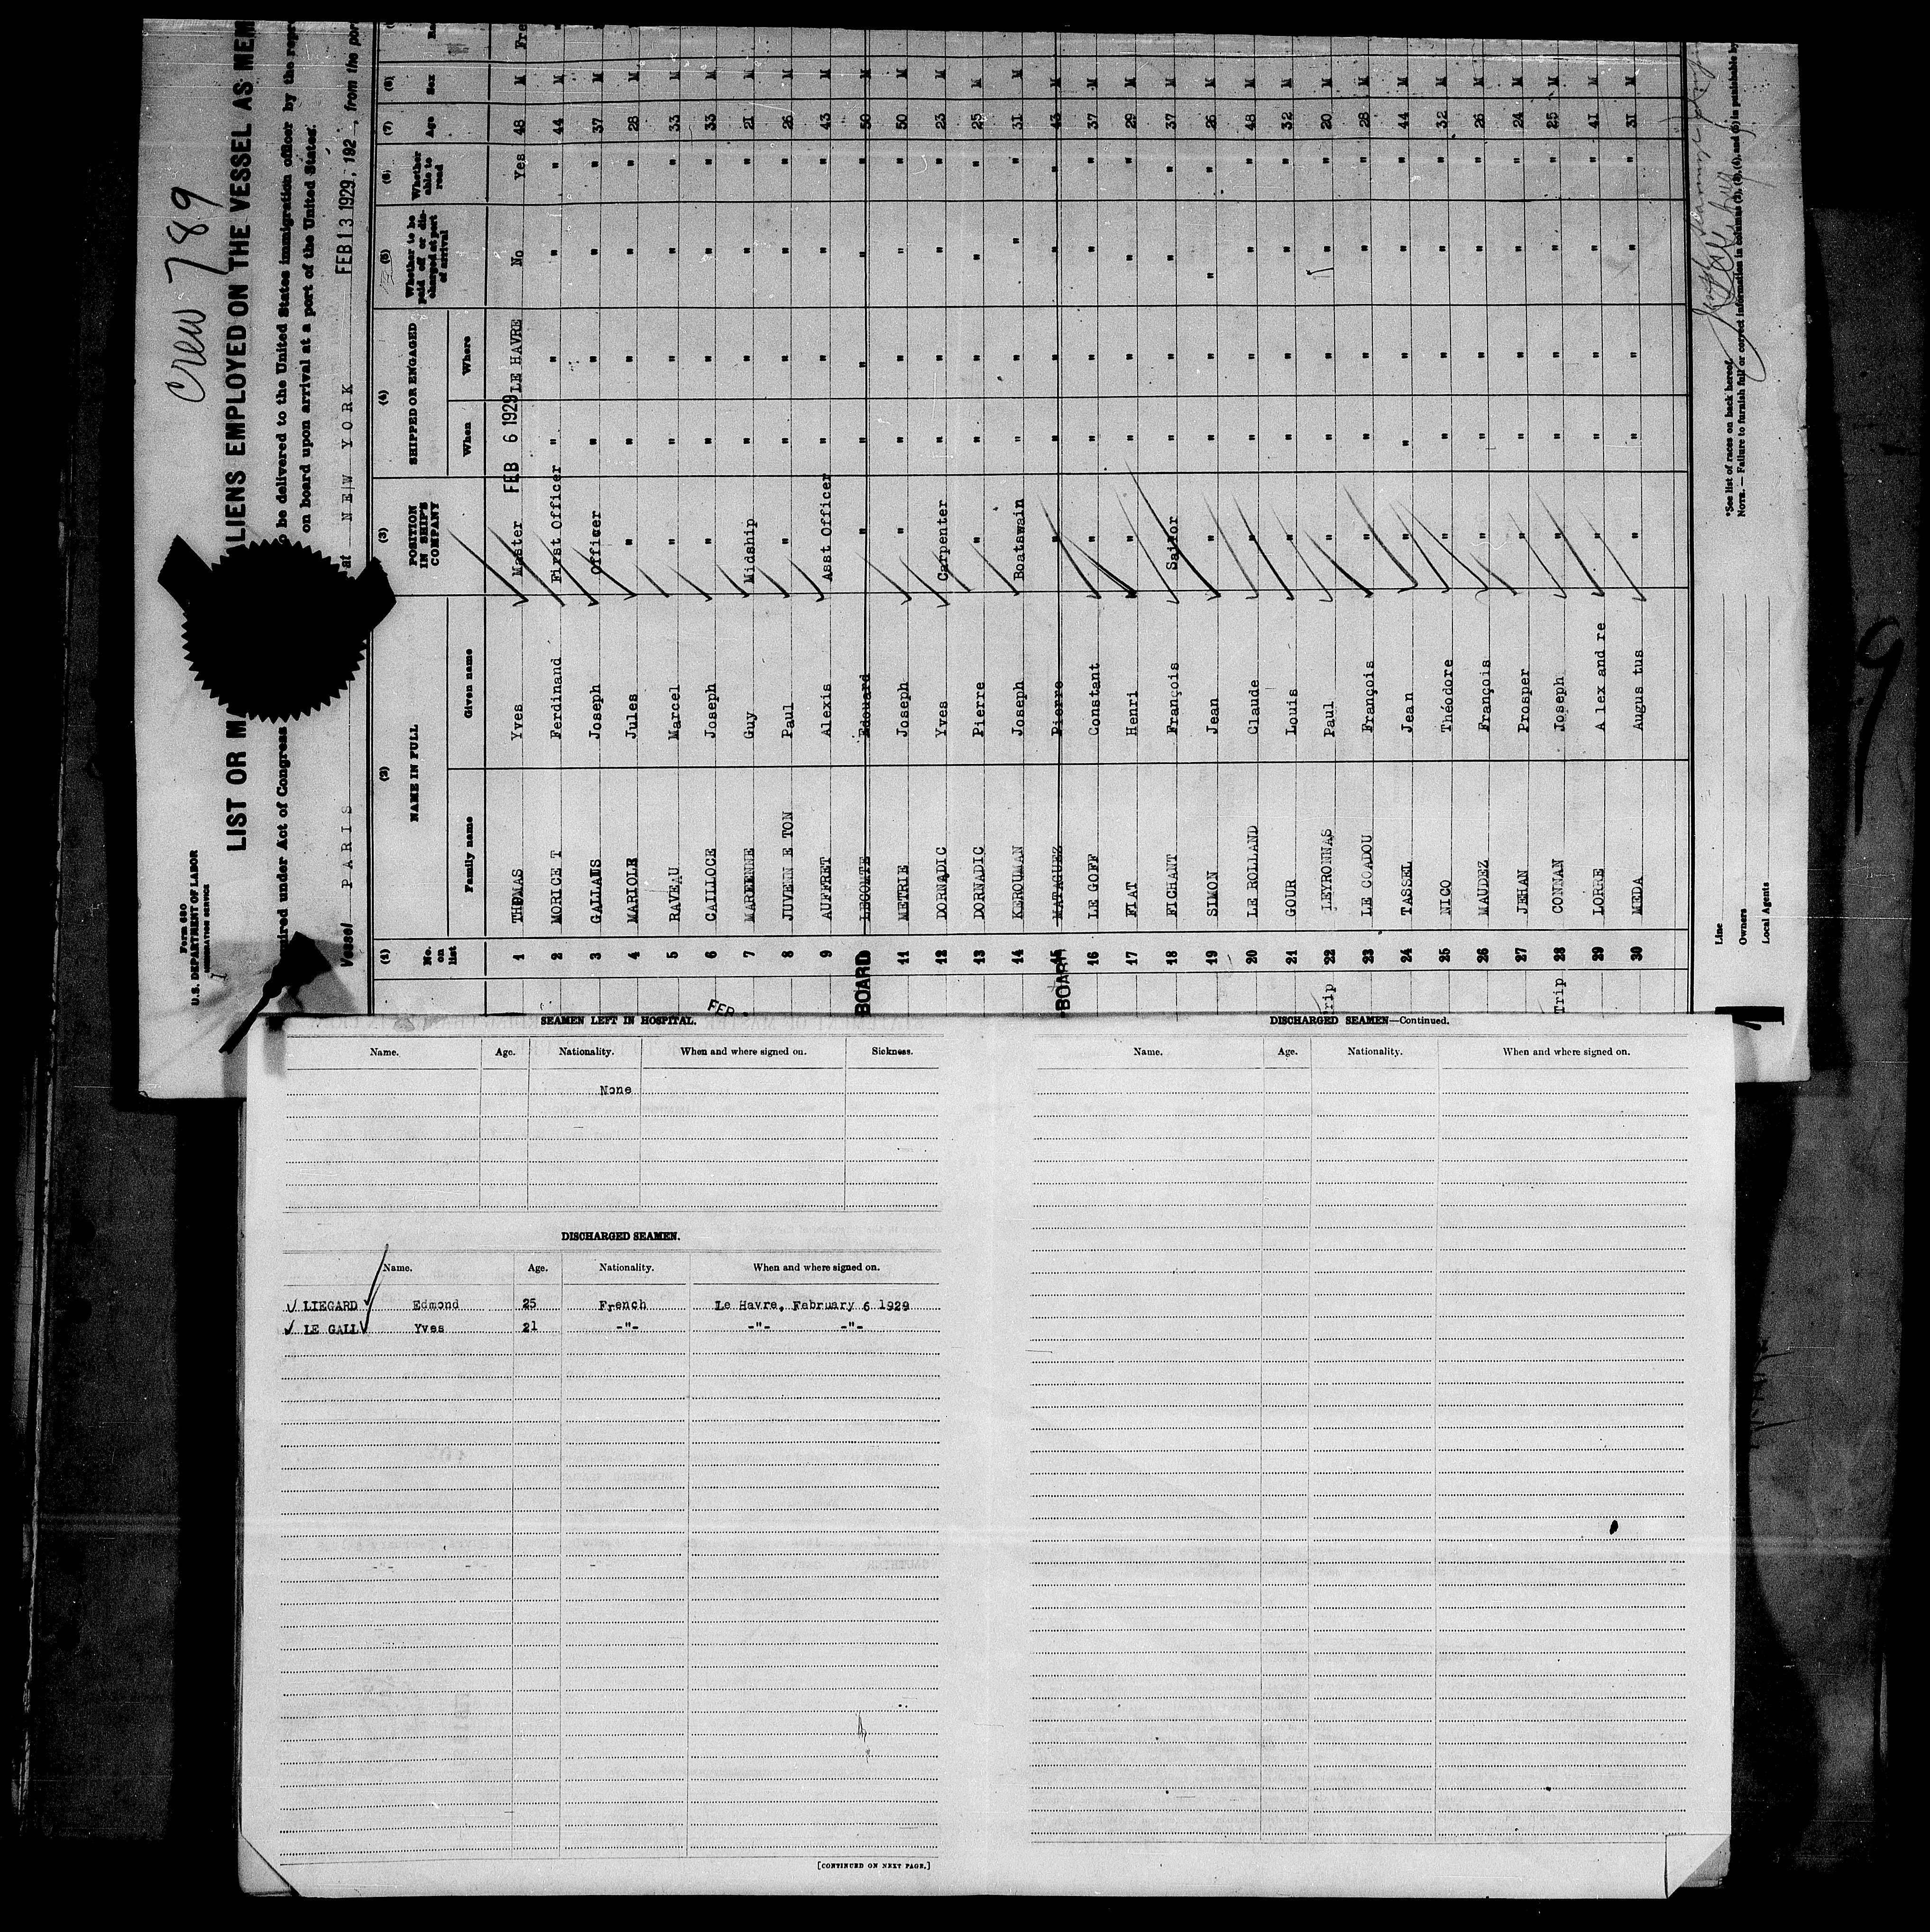 Crew 789
Form 680
U.S. DEPARTMENT OF LABOR
IMMIGRATION SERVICE
LIST OR MA LIENS EMPLOYED ON THE VESSEL AS MEM
ired under Act of Congress o be delivered to the United States immigration officer by the repr
on board upon arrival at a port of the United States.
Vessel PARIS at NEW YORK FEB 13 1929, 192 , from the por
(1) (2) (3) (4) (5) (6) (7) (8)
No. on list NAME IN FULL POSITION IN SHIP'S COMPANY SHIPPED OR ENGAGED Whether to be paid off or discharged at port of arrival Whether able to read Age Sex
Family name Given name When Where
1 THOMAS Yves Master FEB 6 1929 LE HAVRE No Yes 48 M Fre
2 MORICE T Ferdinand First Officer " " " " 44 M
3 GALLAIS Joseph Officer " " " " 37 M
4 MARIOLE Jules " " " " " 28 M
5 RAVEAU Marcel " " " " " 33 M
6 CAILLOCE Joseph " " " " " 33 M
7 MAREENNE Guy Midship " " " " 21 M
8 JUVENN E TON Paul " " " " " 26 M
9 AUFFRET Alexis Asst Officer " " " " 43 M
BOARD LECOMTE Edouard " " " " " 50 M
11 METRIE Joseph " " " " " 50 M
12 DORNADIC Yves Carpenter " " " " 23 M
13 DORNADIC Pierre " " " " " 25 M
14 KEROUMAN Joseph Boatswain " " " " 31 M
BOARD 15 MATAGUEZ Pierre " " " " " 43 M
16 LE GOFF Constant " " " " " 37 M
17 FIAT Henri " " " " " 29 M
18 FICHANT François Sailor " " " " 37 M
19 SIMON Jean " " " " " 26 M
20 LE ROLLAND Claude " " " " " 48 M
21 GOUR Louis " " " " " 32 M
rip 22 LEYRONNAS Paul " " " " " 20 M
23 LE COADOU François " " " " " 28 M
24 TASSEL Jean " " " " " 44 M
25 NICO Théodore " " " " " 32 M
26 MAUDEZ François " " " " " 26 M
27 JEHAN Prosper " " " " " 24 M
Trip 28 CONNAN Joseph " " " " " 25 M
29 LORRE A lex and re " " " " " 41 M
30 MEDA Augus tus " " " " " 31 M
Line
Owners
Local Agents
*See list of races on back hereof.
NOTE.—Failure to furnish full or correct information in columns (2), (3), (4), and (5) is punishable by
SEAMEN LEFT IN HOSPITAL.
Name. Age. Nationality. When and where signed on. Sickness.
None
DISCHARGED SEAMEN.
Name. Age. Nationality. When and where signed on.
LIEGARD Edmond 25 French Le Havre, Fabruary 6 1929
LE GALL Yves 21 -"- -"- -"-
[CONTINUED ON NEXT PAGE.]
DISCHARGED SEAMEN—Continued.
Name. Age. Nationality. When and where signed on.
9